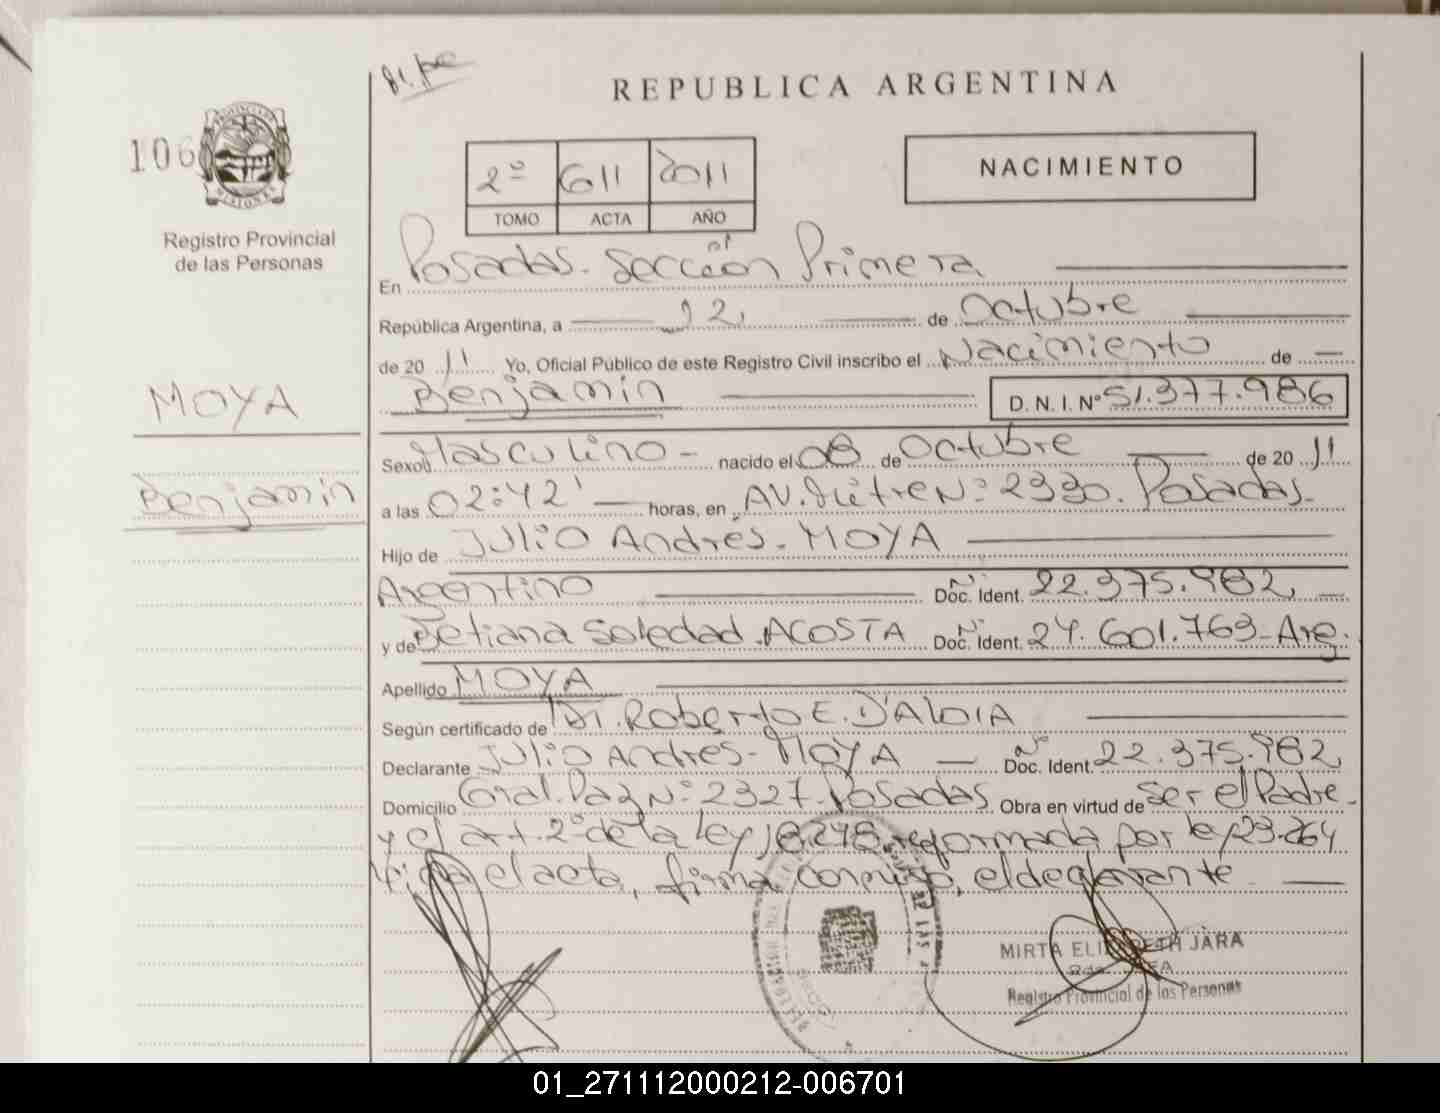 REPUBLICA ARGENTINA
106
Registro Provincial
de las Personas
2º 611 2011
TOMO ACTA AÑO
NACIMIENTO
En Posadas. Sección Primera
República Argentina, a 12, de Octubre
de 20 11 Yo, Oficial Público de este Registro Civil inscribo el Nacimiento de
MOYA
Benjamin
Benjamin D. N. I. Nº 51.377.986
Sexo Masculino - nacido el 08 de Octubre de 20 11
a las 02:42' horas, en AV. Mitre Nº 2330. Posadas.
Hijo de Julio Andrés. MOYA
Argentino Nº Doc. Ident. 22.375.982,
y de Betiana Soledad ACOSTA Nº Doc. Ident. 24.601.769-Arg.
Apellido MOYA
Según certificado de Dr. Roberto E. D'ALOIA
Declarante Julio Andrés - MOYA Nº Doc. Ident. 22.375.982,
Domicilio Gral. Paz Nº 2327. Posadas Obra en virtud de Ser el Padre
y el art. 2º de la Ley 18.248 reformada por ley 23.264
el acta, firma conmigo, el declarante
MIRTA ELIZABETH JARA
Registro Provincial de las Personas
01_271112000212-006701